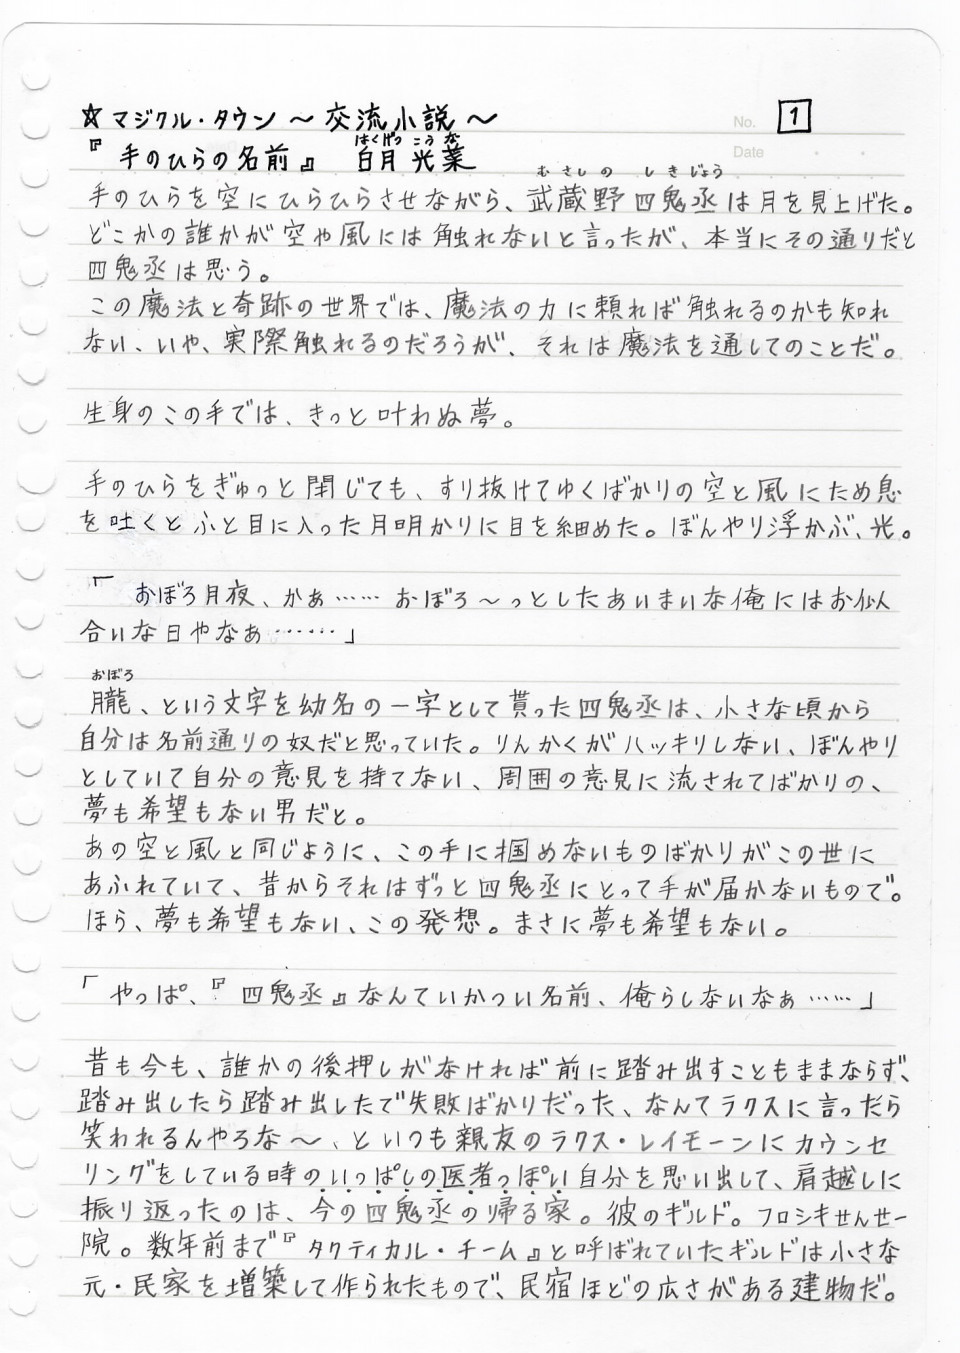 ☆マジクル・タウン ～交流小説～
No. 1
Date
『手のひらの名前』 白月 光菜
はくげつ こうな
むさしの しきじょう
手のひらを空にひらひらさせながら、武蔵野四鬼丞は月を見上げた。
どこかの誰かが空や風には触れないと言ったが、本当にその通りだと
四鬼丞は思う。
この魔法と奇跡の世界では、魔法の力に頼れば触れるのかも知れ
ない、いや、実際触れるのだろうが、それは魔法を通してのことだ。
生身のこの手では、きっと叶わぬ夢。
手のひらをぎゅっと閉じても、すり抜けてゆくばかりの空と風にため息
を吐くとふと目に入った月明かりに目を細めた。ぼんやり浮かぶ、光。
「おぼろ月夜、かぁ……おぼろ～っとしたあいまいな俺にはお似
合いな日やなぁ……」
おぼろ
朧、という文字を幼名の一字として貰った四鬼丞は、小さな頃から
自分は名前通りの奴だと思っていた。りんかくがハッキリしない、ぼんやり
としていて自分の意見を持てない、周囲の意見に流されてばかりの、
夢も希望もない男だと。
あの空と風と同じように、この手に掴めないものばかりがこの世に
あふれていて、昔からそれはずっと四鬼丞にとって手が届かないもので。
ほら、夢も希望もない、この発想。まさに夢も希望もない。
「やっぱ、『四鬼丞』なんていかつい名前、俺らしないなぁ……」
昔も今も、誰かの後押しがなければ前に踏み出すこともままならず、
踏み出したら踏み出したで失敗ばかりだった、なんてラクスに言ったら
笑われるんやろな～、といつも親友のラクス・レイモーンにカウンセ
リングをしている時のいっぱしの医者っぽい自分を思い出して、肩越しに
振り返ったのは、今の四鬼丞の帰る家。彼のギルド。フロシキせんせー
院。数年前まで『タクティカル・チーム』と呼ばれていたギルドは小さな
元・民家を増築して作られたもので、民宿ほどの広さがある建物だ。